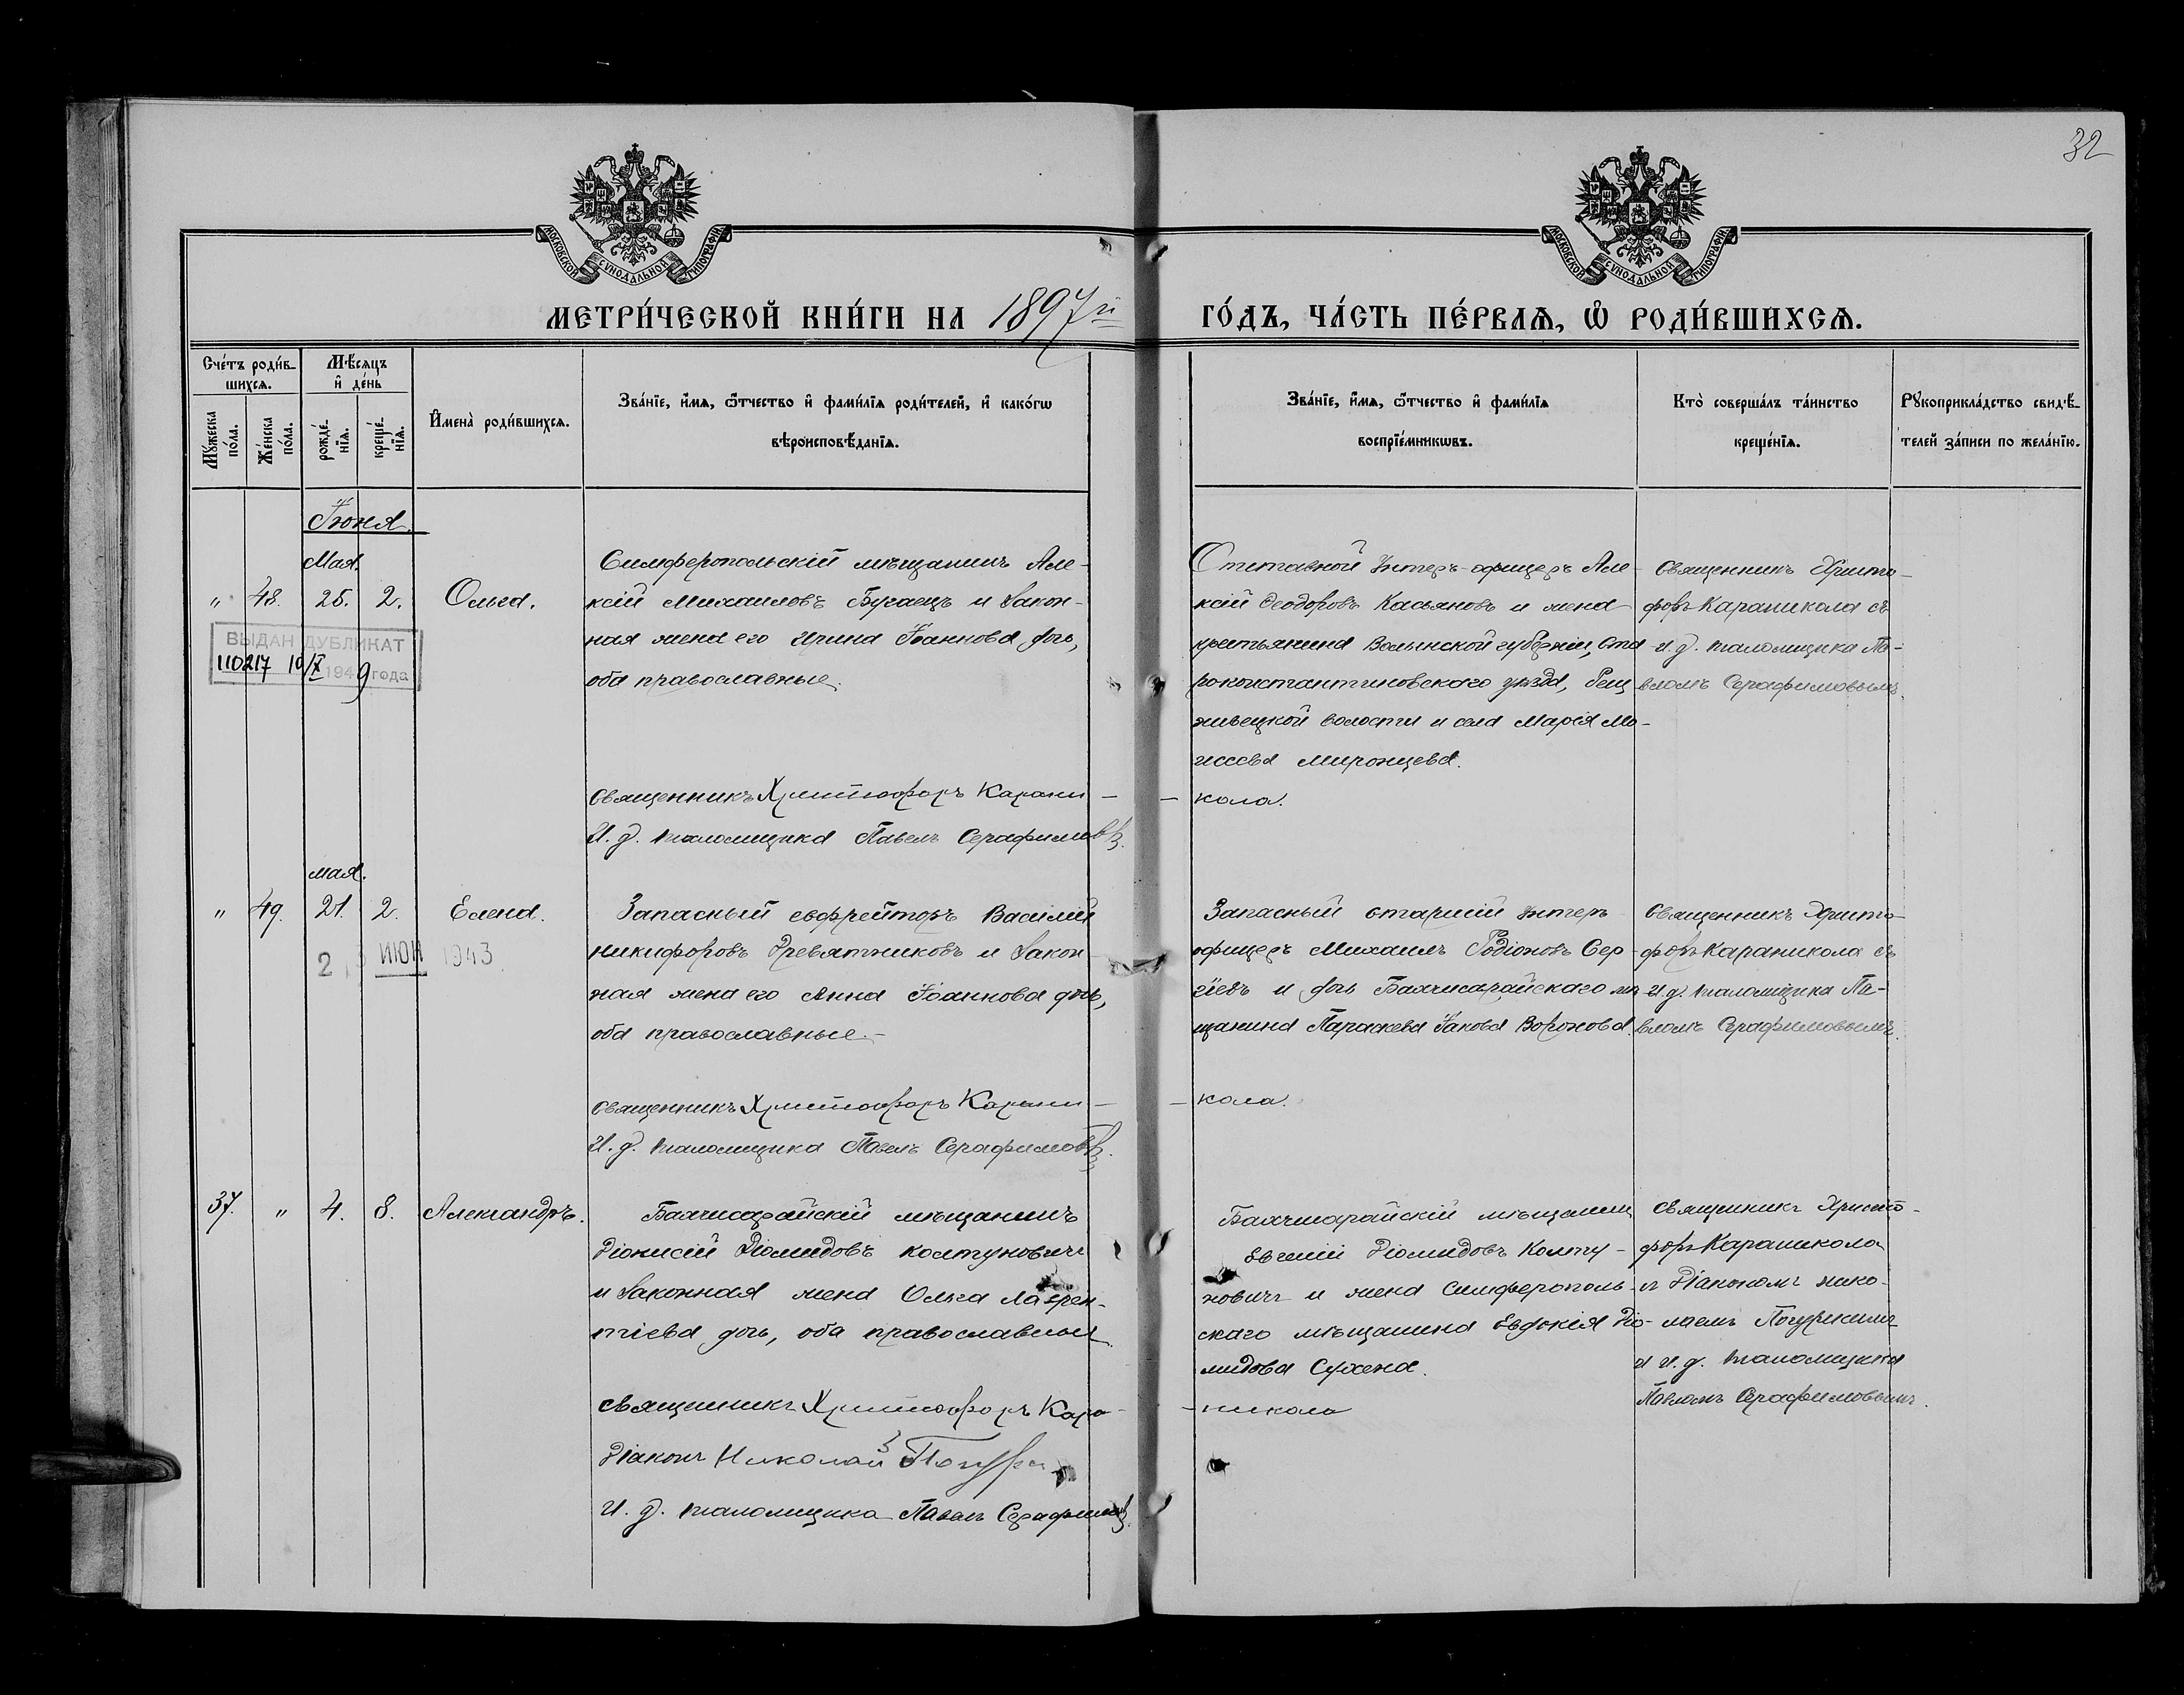 32
МОСКОВСКОЙ СУНОДАЛЬНОЙ ТИПОГРАФІИ
МОСКОВСКОЙ СУНОДАЛЬНОЙ ТИПОГРАФІИ
МЕТРИ́ЧЕСКОЙ КНИ́ГИ НА 1897й
ГО́ДЪ, ЧА́СТЬ ПЕ́РВАѦ, Ѡ РОДИ́ВШИХСѦ.
Сче́тъ роди́в-
шихсѧ.
Мꙋжеска по́ла.
Же́нска по́ла.
Мѣ́сяцъ
и де́нь
рожде́-
нїѧ.
креще́-
нїѧ.
Имена̀ роди́вшихсѧ.
Зва́нїе, и́мѧ, ѻ҆́тчество и фами́лїѧ роди́телей, и како́гѡ
вѣроисповѣ́данїѧ.
Зва́нїе, и́мѧ, ѻ҆́тчество и фами́лїѧ
воспрїе́мникѡвъ.
Кто̀ соверша́лъ та́инство
креще́нїѧ.
Рꙋкоприкла́дство свидѣ́-
телей за́писи по жела́нїю.
Іюня.
Мая.
" 48. 25. 2. Ольга.
Симферопольскій мѣщанинъ Але-
ксій Михаиловъ Бугаецъ и закон-
ная жена его Ирина Іоаннова дочь,
оба православные.
Отставной Унтеръ-офицеръ Але-
ксій Ѳеодоровъ Касьяновъ и жена
крестьянина Волынской губерніи, Ста
роконстантиновскаго уѣзда,
волости и села Марѳа Мо-
исеева Миронцева.
Священникъ Христо-
форъ Караникола съ
И. д. псаломщика Па-
вломъ Серафимовымъ.
ВЫДАН ДУБЛИКАТ
110217 10/X 1949 года
Священникъ Христофоръ Карани-
-кола.
И. д. псаломщика Павелъ Серафимовъ.
мая.
" 49. 21. 2. Елена.
Запасный ефрейторъ Василій
Никифоровъ Древятниковъ и закон-
ная жена его Анна Іоаннова дочь,
оба православные.-
Запасный старшій Унтеръ
офицеръ Михаилъ Родіоновъ Сер-
гіевъ и дочь Бахчисарайскаго мѣ
щанина Параскева Іакова Воронова.
Священникъ Христо-
форъ Караникола съ
И. д. псаломщика Па-
вломъ Серафимовымъ.
2 3 ИЮН 1943
Священникъ Христофоръ Карани-
-кола.
И. д. псаломщика Павелъ Серафимовъ.
37. " 4. 8. Александръ.
Бахчисарайскій мѣщанинъ
Діонисій Діомидовъ Колтуновичъ
и законная жена Ольга Лаврен-
тіева дочь, оба православные.
Бахчисарайскій мѣщанинъ
Евгеній Діомидовъ Колту-
новичъ и жена Симферополь-
скаго мѣщанина Евдокія Діо-
мидова Сухена.
Священникъ Христо-
форъ Караникола
съ Діакономъ Нико-
лаемъ
и И. д. псаломщика
Павломъ Серафимовымъ.
Священникъ Христофоръ Кара-
-никола
Діаконъ Николай
И. д. псаломщика Павелъ Серафимовъ.